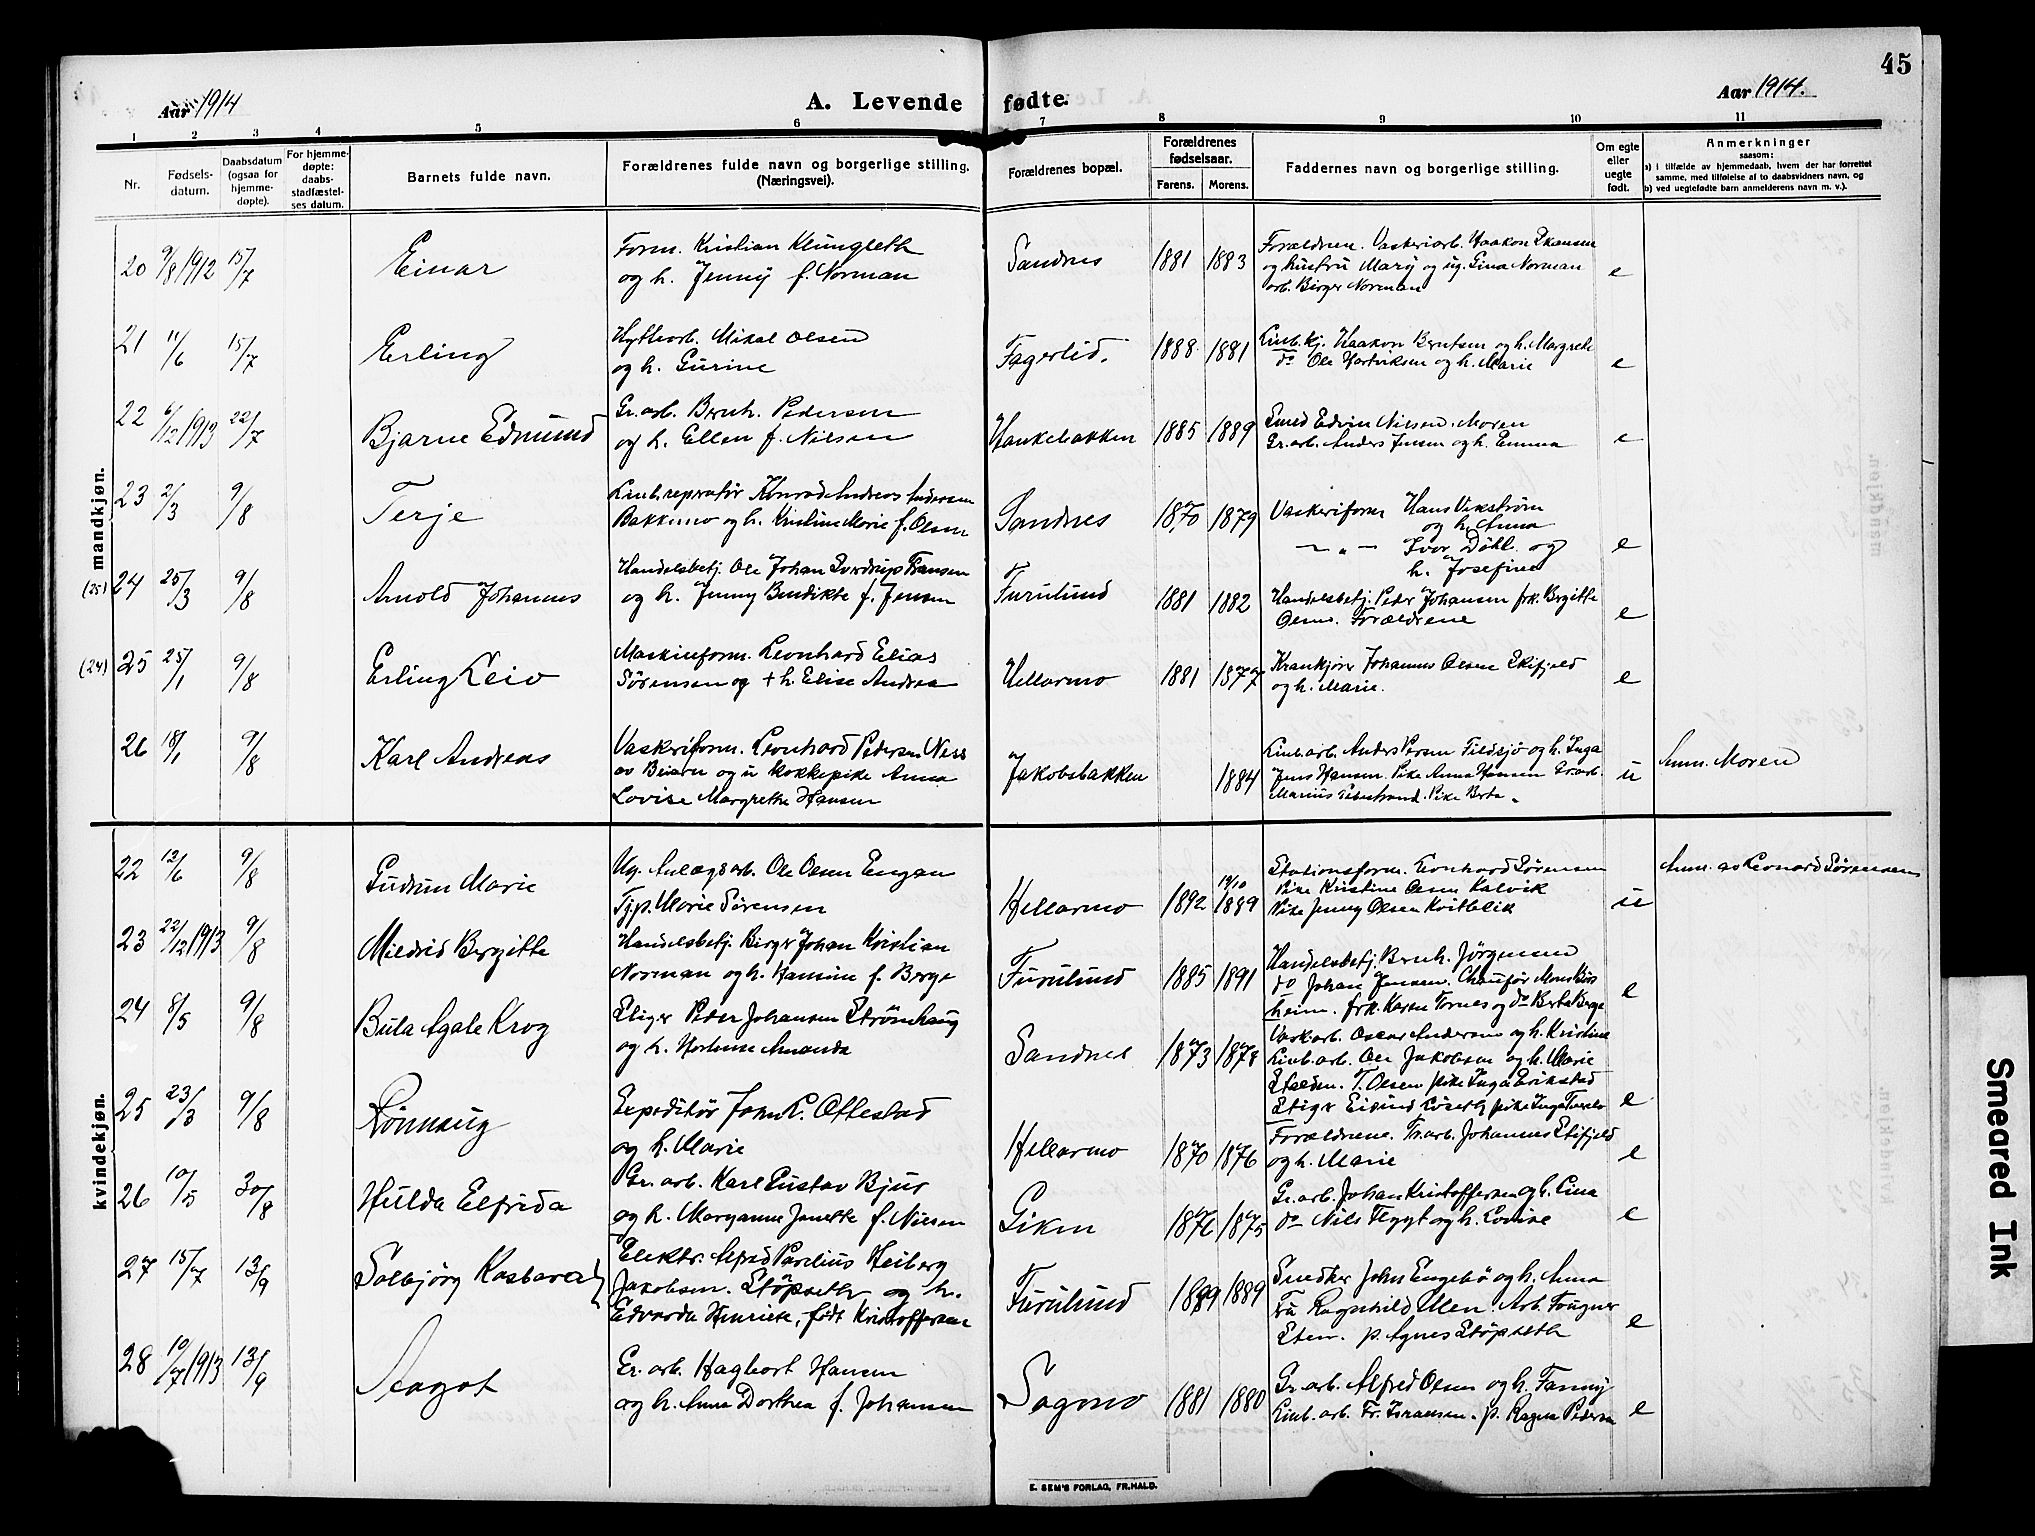 45
Aar 1914
A. Levende fødte.
Aar 1914.
1 2 3 4 5 6 7 8 9 10 11
Nr.
Fødsels-
datum.
Daabsdatum
(ogsaa for
hjemme-
døpte).
For hjemme-
døpte:
daabs-
stadfæstel-
ses datum.
Barnets fulde navn.
Forældrenes fulde navn og borgerlige stilling.
(Næringsvei).
Forældrenes bopæl.
Forældrenes
fødselsaar.
Farens. Morens.
Faddernes navn og borgerlige stilling.
Om egte
eller
uegte
født.
Anmerkninger
saasom:
a) i tilfælde av hjemmedaab, hvem der har forrettet
samme, med tilføielse af to daabsvidners navn, og
b) ved uegtefødte barn anmelderens navn m. v.).
mandkjøn.
20 9/8 1912 15/7 Einar
Form. Kristian Klungseth
og h. Jenny f. Norman
Sandnes 1881 1883
Forældrene. Vaskeriarb. Haakon
og hustru Mary og ug. Gina Norman
arb. Birger Norman
e
21 11/6 15/7 Erling
Hyttearb. Mikal Olsen
og h. Gurine
Fagerlid. 1888 1881
Linb.kj. Haakon Berntsen og h. Margrete
do Ole Hartviksen og h. Marie
e
22 6/12 1913 22/7 Bjarne Edmund
Gr. arb. Bernh. Pedersen
og h. Ellen f. Nilsen
Hankebakken 1885 1889
Smed Edvin Nilsen. Moren
Gr. arb. Anders Jensen og h. Emma
e
23 2/3 9/8 Terje
Linb.reparatør Konrad Andreas Andersen
Bakkemo og h. Kristine Marie f. Olsen
Sandnes 1870 1879
Vaskeriform Hans Vikstrøm
og h. Anna
— " — Ivar Dåhl. og
h. Josefine
e
(25) 24 25/3 9/8 Arnold Johannes
Handelsbetj. Ole Johan Sverdrup Fransen
og h. Jenny Bendikte f. Jensen
Furulund 1881 1882
Handelsbetj. Peder Johansen frk. Bergitte
Olsen. Forældrene
e
(24) 25 25/1 9/8 Erling Leiv
Maskinform. Leonhard Elias
Sørensen og + h. Elise Andrea
Hellarmo 1881 1877
Krankjører Johannes Olsen
og h. Marie.
e
26 18/1 9/8 Karl Andreas
Vaskeriform. Leonhard Pedersen Ness
av Beiarn og u kokkepike Anna
Lovise Margrethe Hansen
Jakobsbakken 1884
Linb.arb. Anders Persen Tildsjø og h. Inga
Jens Hansen. Pike Anna Hansen Gr.arb.
Marius Pike Berta "
u
Anm. Moren
kvindekjøn.
22 12/6 9/8 Gudrun Marie
Ug. Anlægsarb. Ole Olsen Engan
Tjp. Marie Sørensen
Hellarmo 1892 19/10 1889
Stationsform. Leonhard Sørensen
Pike Kristine Olsen Kalvik
Pike Jenny Olsen Kvitblik
u
Anm. av Leonard Sørensen
23 22/12 1913 9/8 Mildrid Bergitte
Handelsbetj. Birger Johan Kristian
Norman og h. Hansine f. Berge
Furulund 1885 1891
Handelsbetj. Bernh. Jørgensen
do Johan Jensen. Chauffør Mons
heim. frk. Karen Tornes og do Berta Berge
e
24 8/5 9/8 Bula Agate Krog
Stiger Peder Johansen Strömhaug
og h. Hortense Amanda
Sandnes 1873 1878
Vask.arb. Oscar Andersen og h. Kristine
Linb.arb. Ole Jakobsen og h. Marie
T. Olsen pike Inga Erikstad
Stiger Eivind pike Inga
e
25 23/3 9/8 Rönnaug
Expeditør John L. Oftestad
og h. Marie
Hellarmo 1870 1876
Forældrene. Tr.arb. Johannes
og h. Marie
e
26 10/5 30/8 Hulda Elfrida
Gr. arb. Karl Gustav Bjur
og h. Maryanne Janette f. Nilsen
Giken 1876 1875
Gr. arb. Johan Kristoffersen og h. Lina
do Nils Flygt og h. Lovise
e
27 15/7 13/9 Solbjørg Kasbara
Elektr. Alfred Parelius Heiberg
Jakobsen. Støpseth og h.
Edvarda Henriette, født Kristoffersen
Furulund 1889 1889
Snedker John Engebö og h. Anna
Fru Ragnhild Olsen. Arb. Fougner
Sten. p. Agnes Støpseth
e
28 10/7 1913 13/9 Aagot
Gr. arb. Hagbart Hansen
og h. Anna Dorthea f. Johansen
Sagmo 1881 1880
Gr. arb. Alfred Olsen og h. Fanny
Linb.arb. Fr. Israelsen. p. Ragna Pedersen
e
E. SEM'S FORLAG, FR.HALD.
Smeared Ink